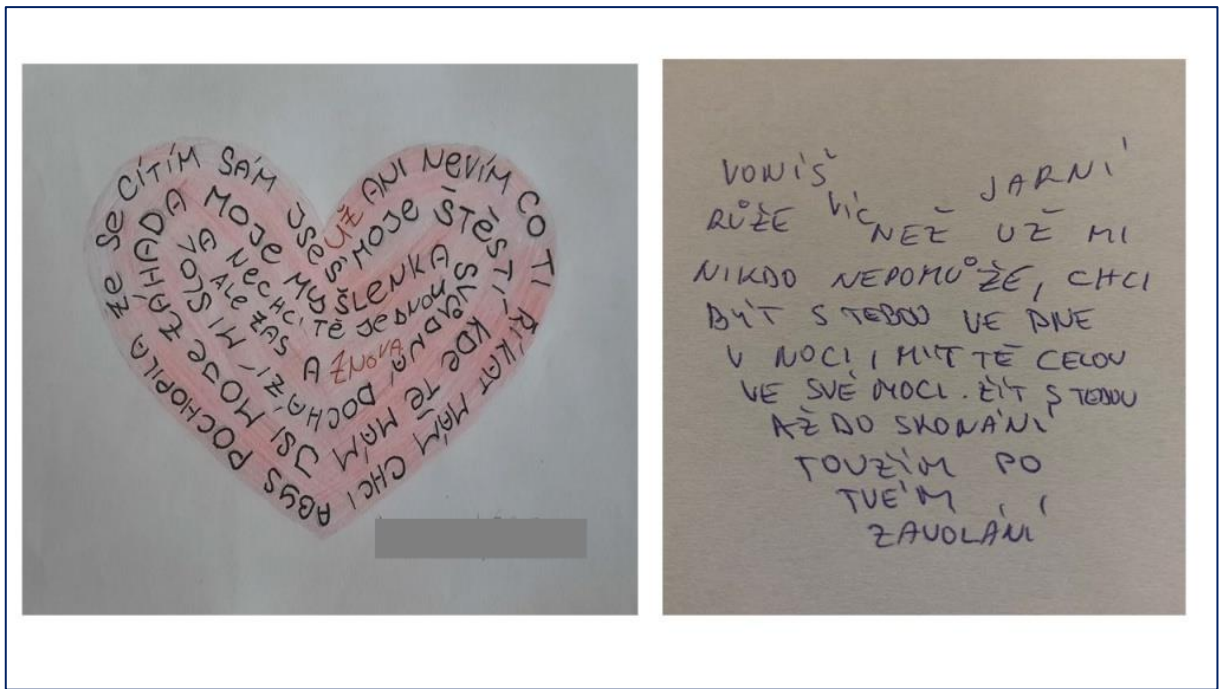 UŽ ANI NEVÍM CO TI ŘÍKAT MÁM CHCI ABYS POCHOPILA ŽE SE CÍTÍM SÁM
JSES MOJE ŠTĚSTÍ KDE TĚ MÁM JSI MOJE ZÁHADA
MOJE MYŠLENKA SVŮDNÁ DOCHÁZÍ MI SLOVA
NECHCI TĚ JEDNOU
ALE ZAS A ZNOVA
VONÍŠ JARNÍ
RŮŽE VÍC NEŽ UŽ MI
NIKDO NEPOMŮŽE, CHCI
BÝT S TEBOU VE DNE
V NOCI, MÍT TĚ CELOU
VE SVÉ MOCI. ŽÍT S TEBOU
AŽ DO SKONÁNÍ
TOUŽÍM PO
TVÉM
ZAVOLÁNÍ